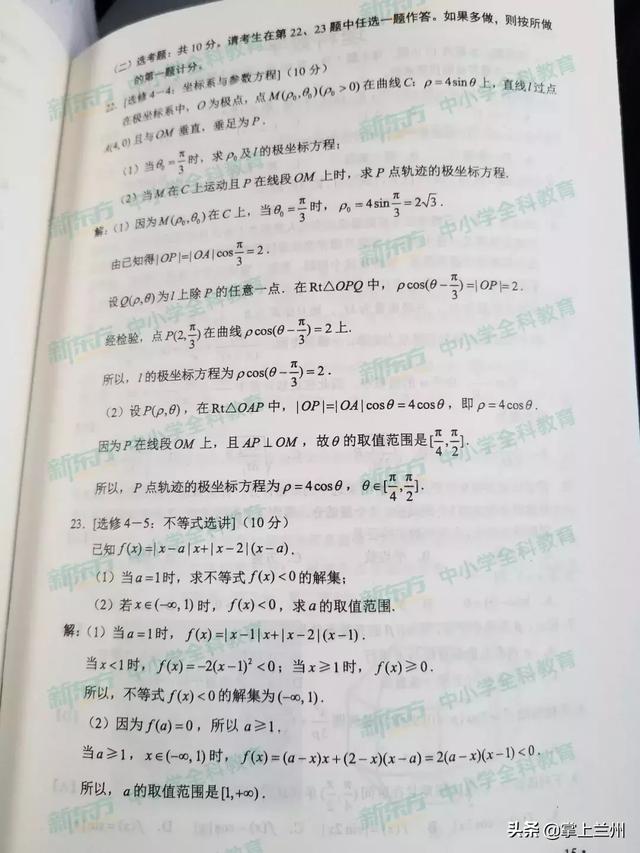 (二)选考题：共10分。请考生在第22、23题中任选一题作答。如果多做，则按所做
的第一题计分。
22. [选修4-4：坐标系与参数方程]（10分）
在极坐标系中，O为极点，点M(ρ₀,θ₀)(ρ₀>0)在曲线C：ρ=4sinθ上，直线l过点
A(4,0)且与OM垂直，垂足为P.
（1）当θ₀=π/3时，求ρ₀及l的极坐标方程；
（2）当M在C上运动且P在线段OM上时，求P点轨迹的极坐标方程.
解：（1）因为M(ρ₀,θ₀)在C上，当θ₀=π/3时，ρ₀=4sinπ/3=2√3.
由已知得|OP|=|OA|cosπ/3=2.
设Q(ρ,θ)为l上除P的任意一点. 在Rt△OPQ中，ρcos(θ-π/3)=|OP|=2.
经检验，点P(2,π/3)在曲线ρcos(θ-π/3)=2上.
所以，l的极坐标方程为ρcos(θ-π/3)=2.
（2）设P(ρ,θ)，在Rt△OAP中，|OP|=|OA|cosθ=4cosθ，即ρ=4cosθ.
因为P在线段OM上，且AP⊥OM，故θ的取值范围是[π/4,π/2].
所以，P点轨迹的极坐标方程为ρ=4cosθ，θ∈[π/4,π/2].
23. [选修4-5：不等式选讲]（10分）
已知f(x)=|x-a|x+|x-2|(x-a).
（1）当a=1时，求不等式f(x)<0的解集；
（2）若x∈(-∞,1)时，f(x)<0，求a的取值范围.
解：（1）当a=1时，f(x)=|x-1|x+|x-2|(x-1).
当x<1时，f(x)=-2(x-1)²<0；当x≥1时，f(x)≥0.
所以，不等式f(x)<0的解集为(-∞,1).
（2）因为f(a)=0，所以a≥1.
当a≥1，x∈(-∞,1)时，f(x)=(a-x)x+(2-x)(x-a)=2(a-x)(x-1)<0.
所以，a的取值范围是[1,+∞).
新东方 中小学全科教育
头条 @掌上兰州